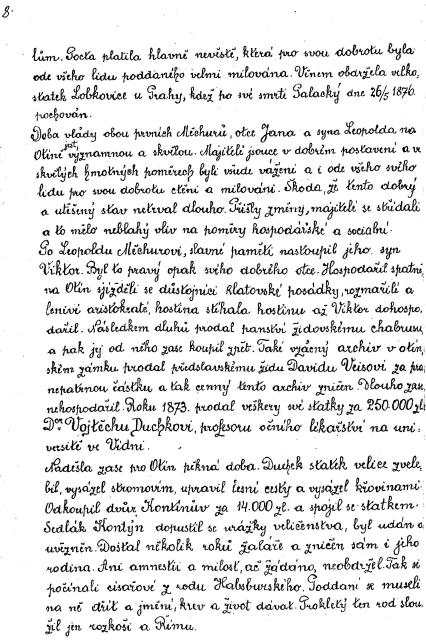 8.
lům. Pocta platila hlavně nevěstě, která pro svou dobrotu byla
ode všeho lidu poddaného velmi milována. Věnem obdržela velko,
statek Lobkovice u Prahy, kdež po své smrti Palacký dne 26/5 1876
pochován.
Doba vlády obou prvních Měchurů, otce Jana a syna Leopolda, na
Otíně jest významnou a skvělou. Majitelé jsouce v dobrém postavení a ve
skvělých hmotných poměrech byli všude váženi a i ode všeho svého
lidu pro svou dobrotu ctěni a milováni. Škoda, že tento dobrý
a utěšený stav netrval dlouho. Přišly změny, majitelé se střídali
a to mělo neblahý vliv na poměry hospodářské a sociální.
Po Leopoldu Měchurovi, slavné paměti nastoupil jeho syn
Viktor. Byl to pravý opak svého dobrého otce. Hospodařil špatně,
na Otín sjížděli se důstojníci klatovské posádky, rozmařilí a
leniví aristokraté, hostina stíhala hostinu až Viktor dohospo,
dařil. Následkem dluhů prodal panství židovskému chabrusu
a pak jej od něho zase koupil zpět. Také vzácný archiv v otín,
ském zámku prodal předslavskému židu Davidu Veisovi za
nepatrnou částku a tak cenný tento archiv zničen. Dlouho zase
nehospodařil. Roku 1873. prodal veškery své statky za 250.000 zl.
Dru Vojtěchu Duchkovi, profesoru očního lékařství na uni-
versitě ve Vídni.
Nadešla zase pro Otín pěkná doba. Duchek statek velice zvele,
bil, vysázel stromovím, upravil lesní cesty a vysázel křovinami.
Odkoupil dvůr Kontínův za 14.000 zl. a spojil se statkem.
Sedlák Kontýn dopustil se urážky veličenstva, byl udán a
uvězněn. Dostal několik roků žaláře a zničen sám i jeho
rodina. Ani amnestii a milost, ač žádáno, neobdržel. Tak si
počínali císařové z rodu Habsburského. Poddaní se museli
na ně dřít a jmění, krev a život dávat. Prokletý ten rod slou,
žil jen rozkoši a Římu.